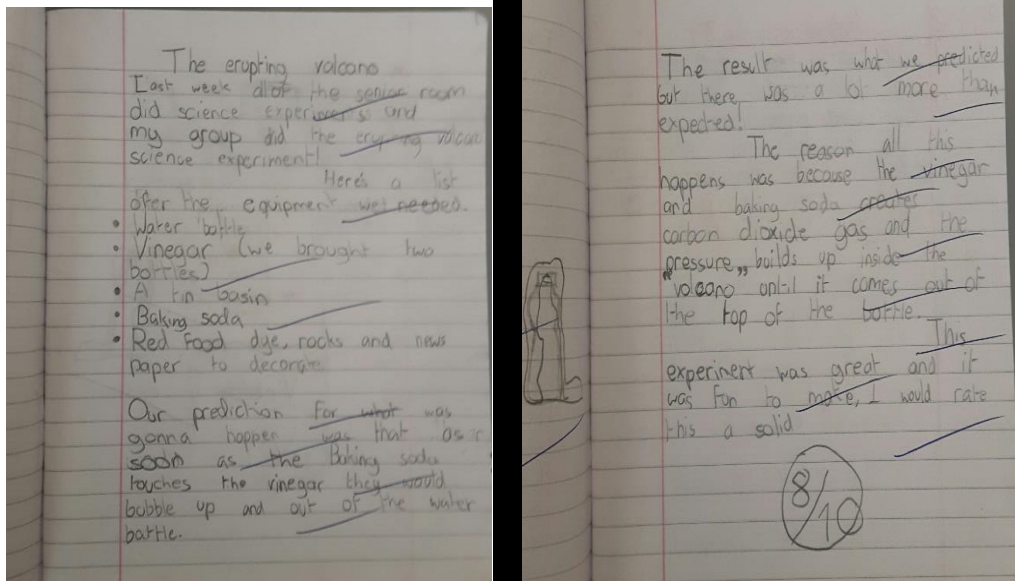 The erupting volcano
Last week all of the senior room
did science experiments and
my group did the erupting volcano
science experiment!
Here's a list
ofer the equipment we needed.
• Water bottle
• Vinegar (we brought two
bottles)
• A tin basin
• Baking soda
• Red food dye, rocks and news
paper to decorate
Our prediction for what was
gonna happen was that as
soon as the Baking soda
touches the vinegar they would
bubble up and out of the water
battle.
The result was what we predicted
but there was a lot more than
expected!
The reason all this
happens was because the vinegar
and baking soda creates
carbon dioxide gas and the
pressure,, builds up inside the
"volcano until it comes out of
the top of the bottle.
This
experiment was great and it
was fun to make, I would rate
this a solid
8/10